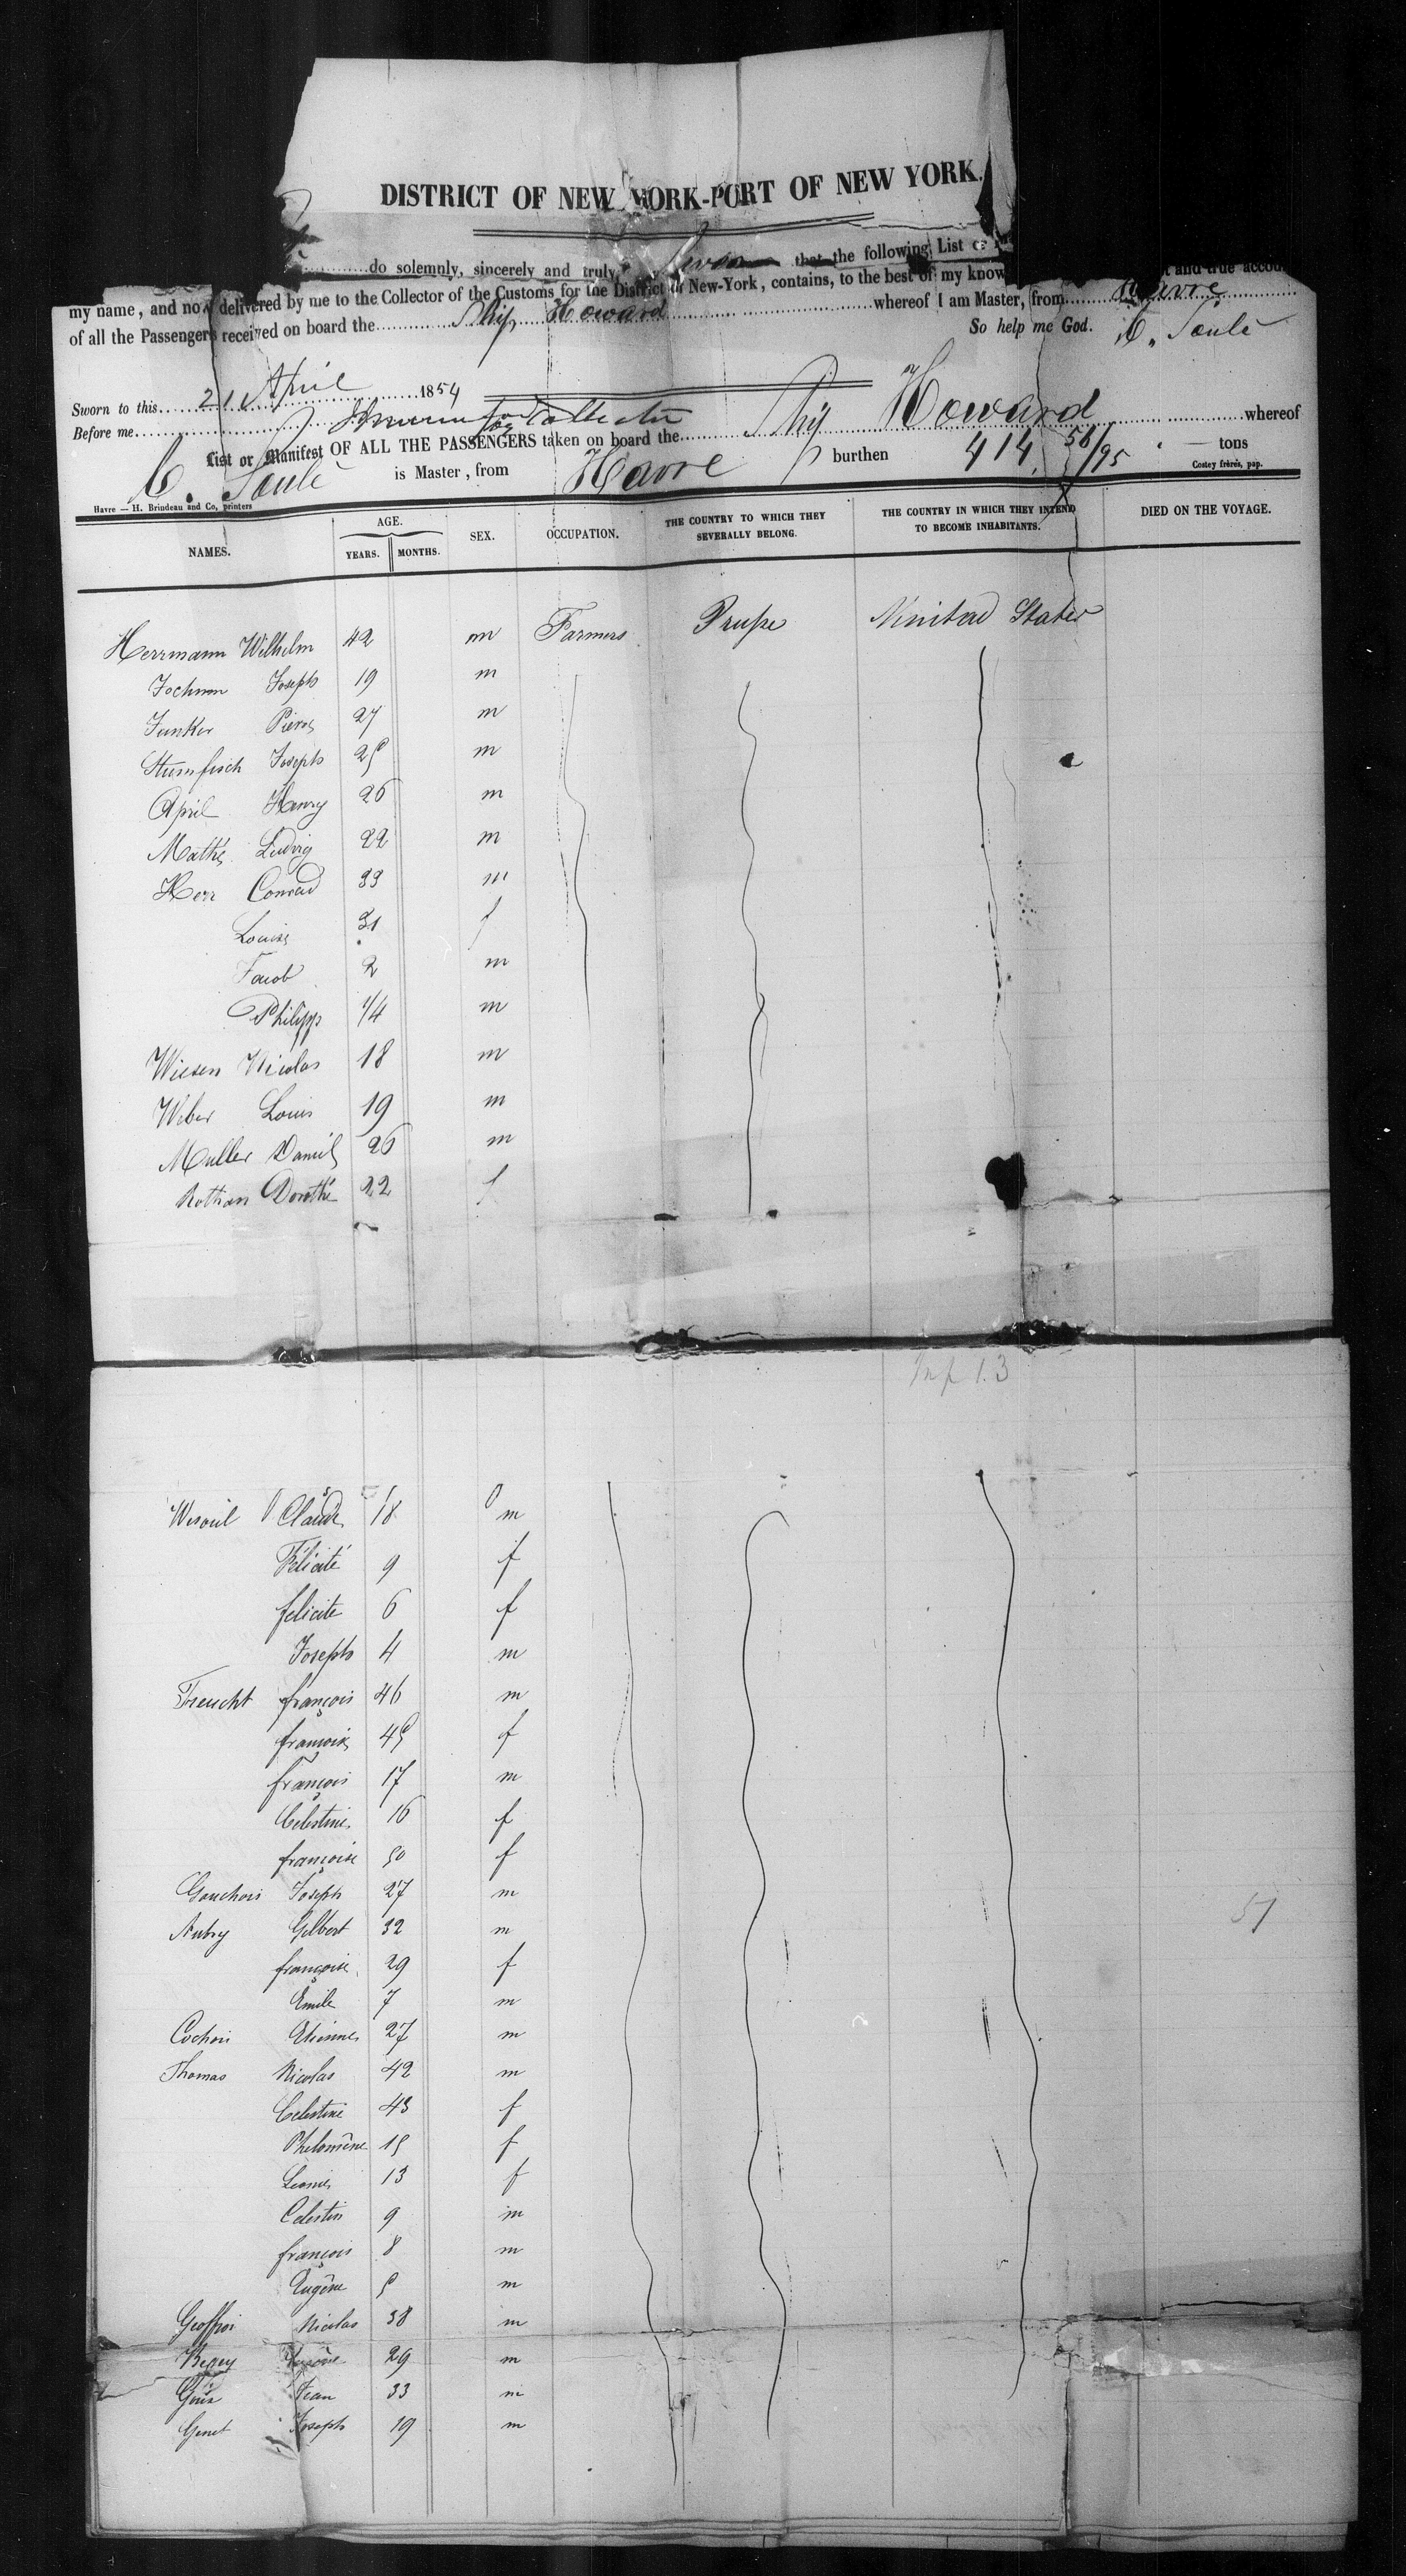 DISTRICT OF NEW YORK-PORT OF NEW YORK.
do solemnly, sincerely and truly, that the following List
my name, and now delivered by me to the Collector of the Customs for the District of New-York, contains, to the best of my know and true accou
of all the Passengers received on board the Ship Howard whereof I am Master, from Havre
So help me God. C. Soulé
Sworn to this 21 April 1854
Before me for Collector
List or Manifest OF ALL THE PASSENGERS taken on board the Ship Howard whereof
C. Soulé is Master, from Havre burthen 414 56/95 tons
Havre — H. Brindeau and Co, printers
Costey frères, pap.
NAMES. AGE. YEARS. MONTHS. SEX. OCCUPATION. THE COUNTRY TO WHICH THEY SEVERALLY BELONG. THE COUNTRY IN WHICH THEY INTEND TO BECOME INHABITANTS. DIED ON THE VOYAGE.
Herrmann Wilhelm 42 m Farmers Prusse United States
Joseph 19 m
Junker 27 m
Stumfisch Joseph 25 m
April Henry 26 m
Mathé Ludwig 22 m
Herr Conrad 33 m
Louise 31 f
Jacob 2 m
Philipp 1/4 m
Wiesen Nicolas 18 m
Weber Louis 19 m
Muller Daniel 26 m
Dorothé 22 f
Claude 18 m
Félicité 9 f
felicite 6 f
Joseph 4 m
Freucht françois 46 m
françoise 45 f
françois 17 m
Celestine 16 f
françoise 50 f
Gauchois Joseph 27 m
Aubry Gilbert 32 m
françoise 29 f
Emile 7 m
Cochois Etienne 27 m
Thomas Nicolas 42 m
Celestine 43 f
Phelomène 15 f
Leonie 13 f
Celestin 9 m
françois 8 m
Eugène 5 m
Geoffroi Nicolas 38 m
29 m
Jean 33 m
Genet Joseph 19 m
51